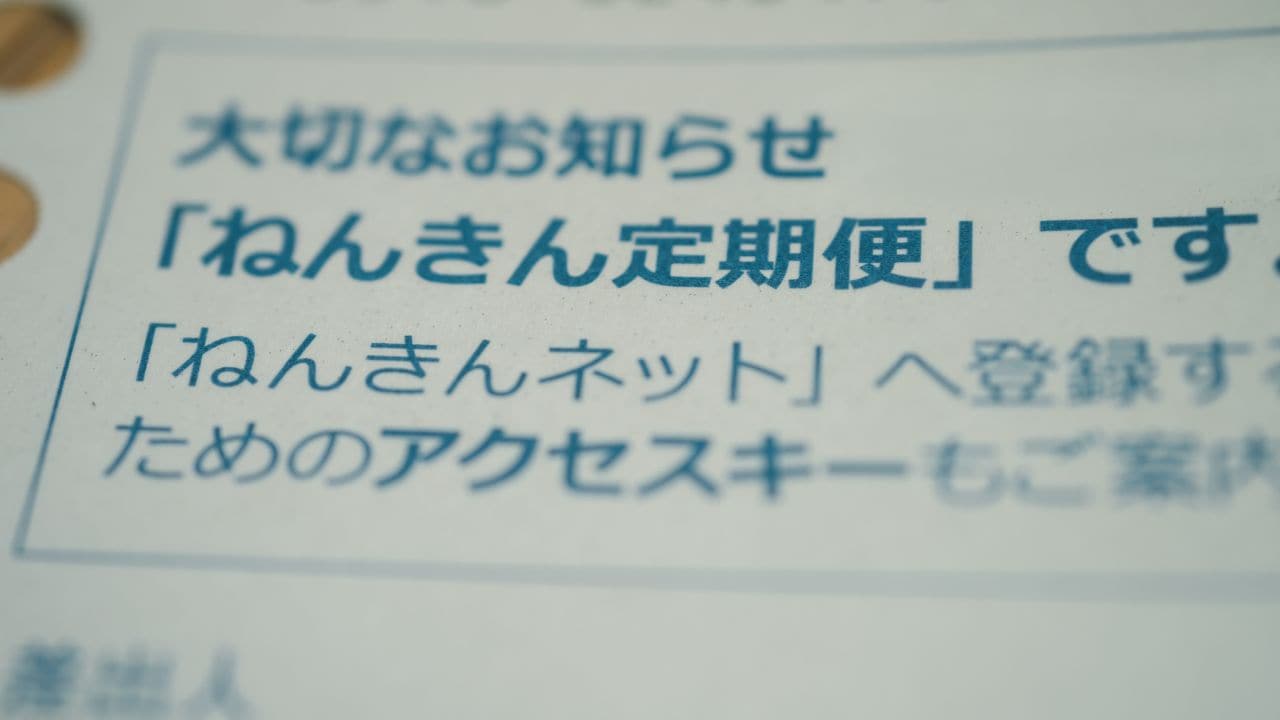 大切なお知らせ
「ねんきん定期便」です
「ねんきんネット」へ登録する
ためのアクセスキーもご案内
差出人